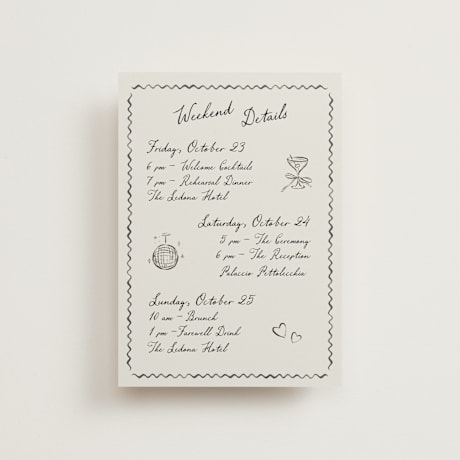 Weekend Details
Friday, October 23
6 pm – Welcome Cocktails
7 pm – Rehearsal Dinner
The Sedona Hotel
Saturday, October 24
5 pm – The Ceremony
6 pm – The Reception
Palaccio Pettolecchia
Sunday, October 25
10 am – Brunch
1 pm – Farewell Drink
The Sedona Hotel